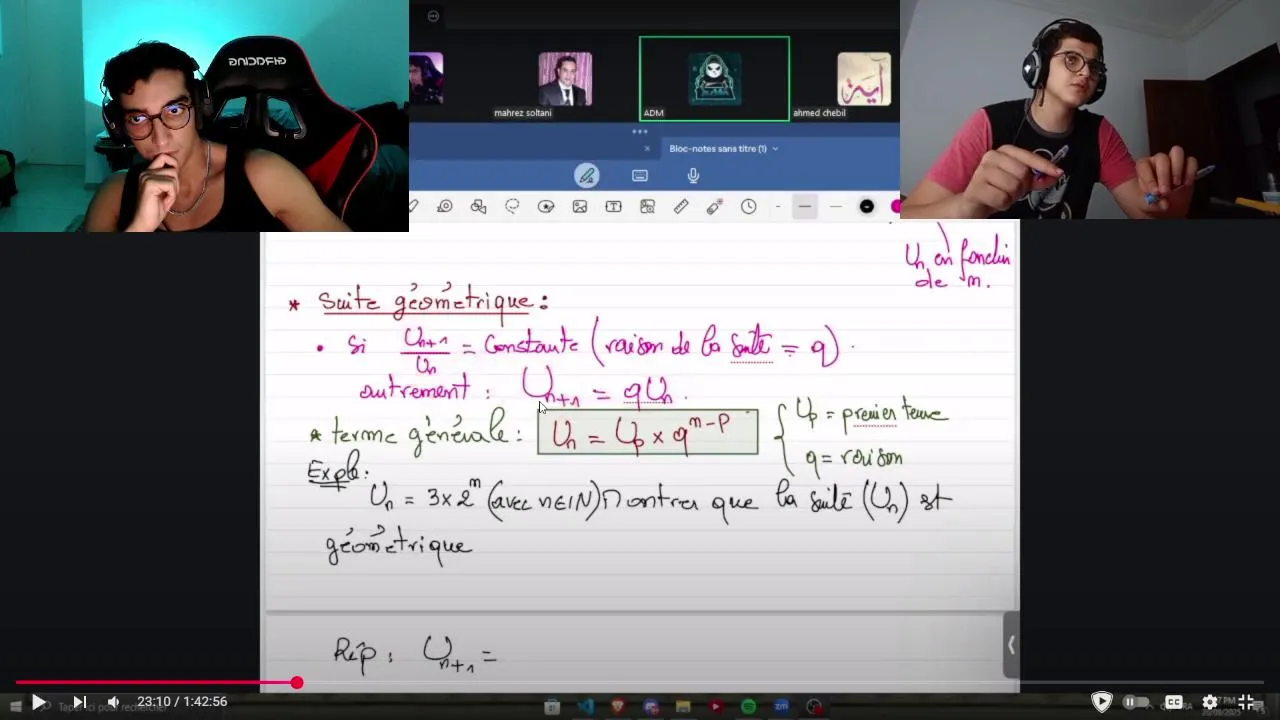 GTRACING
mahrez soltani
ADM
ahmed chebil
Bloc-notes sans titre (1)
Un en fonction
de n.
* Suite géométrique :
• Si Un+1/Un = Constante (raison de la suite = q).
autrement : Un+1 = qUn.
* terme générale : Un = Up × q^n-p { Up = premier terme
q = raison
Expl:
Un = 3×2^n (avec n∈IN) Montrer que la suite (Un) est
géométrique
Rép : Un+1 =
23:10 / 1:42:56
Taper ici pour rechercher